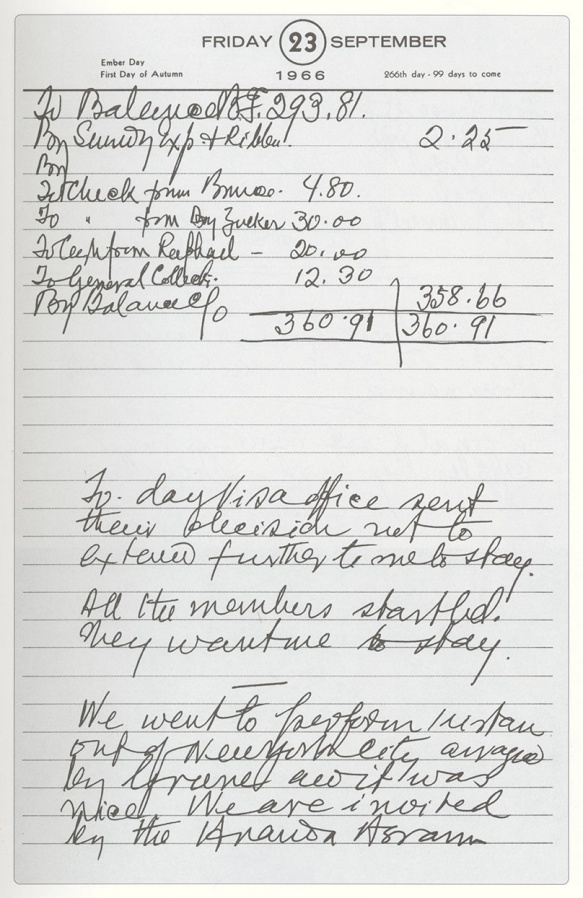 FRIDAY 23 SEPTEMBER
Ember Day
First Day of Autumn
1966
266th day - 99 days to come
To Balance B.F. 293.81.
By Sundry Exp + Ribbon 2.25
By
To Check from Bruce. 4.80.
To " from Zucker 30.00
To Cash from Raphael — 20.00
To General Collect. 12.30
358.66
By Balance C/o
360.91 360.91
To-day Visa office sent
their decision not to
extend further to me to stay.
All the members startled.
They want me to stay.
We went to perform
out of New york City
by and it was
nice. We are invited
by the Ananda Asram